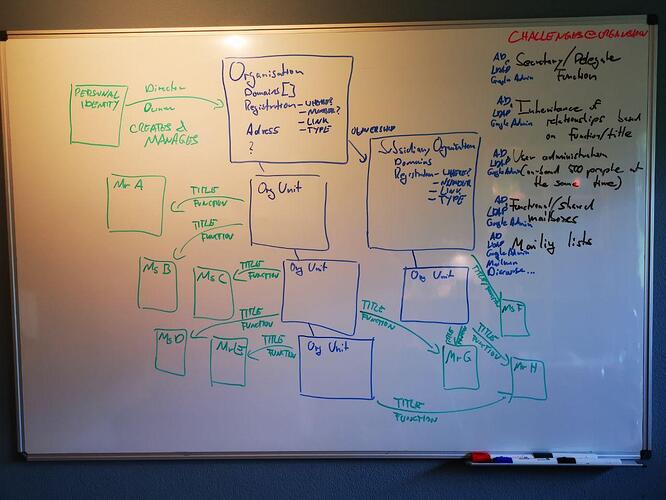 CHALLENGES@ORGANISATION
PERSONAL
IDENTITY
Director
Owner
CREATES &
MANAGES
Organisation
Domains []
Registration - WHERE?
- NUMBER?
- LINK
- TYPE
Adress
?
OWNERSHIP
Subsidiary Organisation
Domains
Registration - WHERE?
- NUMBER
- LINK
- TYPE
Mr A
TITLE
FUNCTION
Org Unit
TITLE
FUNCTION
Ms B
Ms C
TITLE
FUNCTION
Org Unit
Org Unit
TITLE/FUNCTION
Ms F
Ms D
TITLE
FUNCTION
Mr E
TITLE
FUNCTION
Org Unit
TITLE
FUNCTION
TITLE
Mr G
TITLE
FUNCTION
Mr H
TITLE
FUNCTION
AD,
LDAP
Google Admin
Secretary/Delegate
Function
AD,
LDAP
Google Admin
Inheritance of
relationships based
on function/title
AD,
LDAP
Google Admin
User administration
(on-board 500 people at
the same time)
AD,
LDAP
Google Admin
Functional/shared
mailboxes
AD,
LDAP
Google Admin
Mailman
Discourse...
Mailing lists